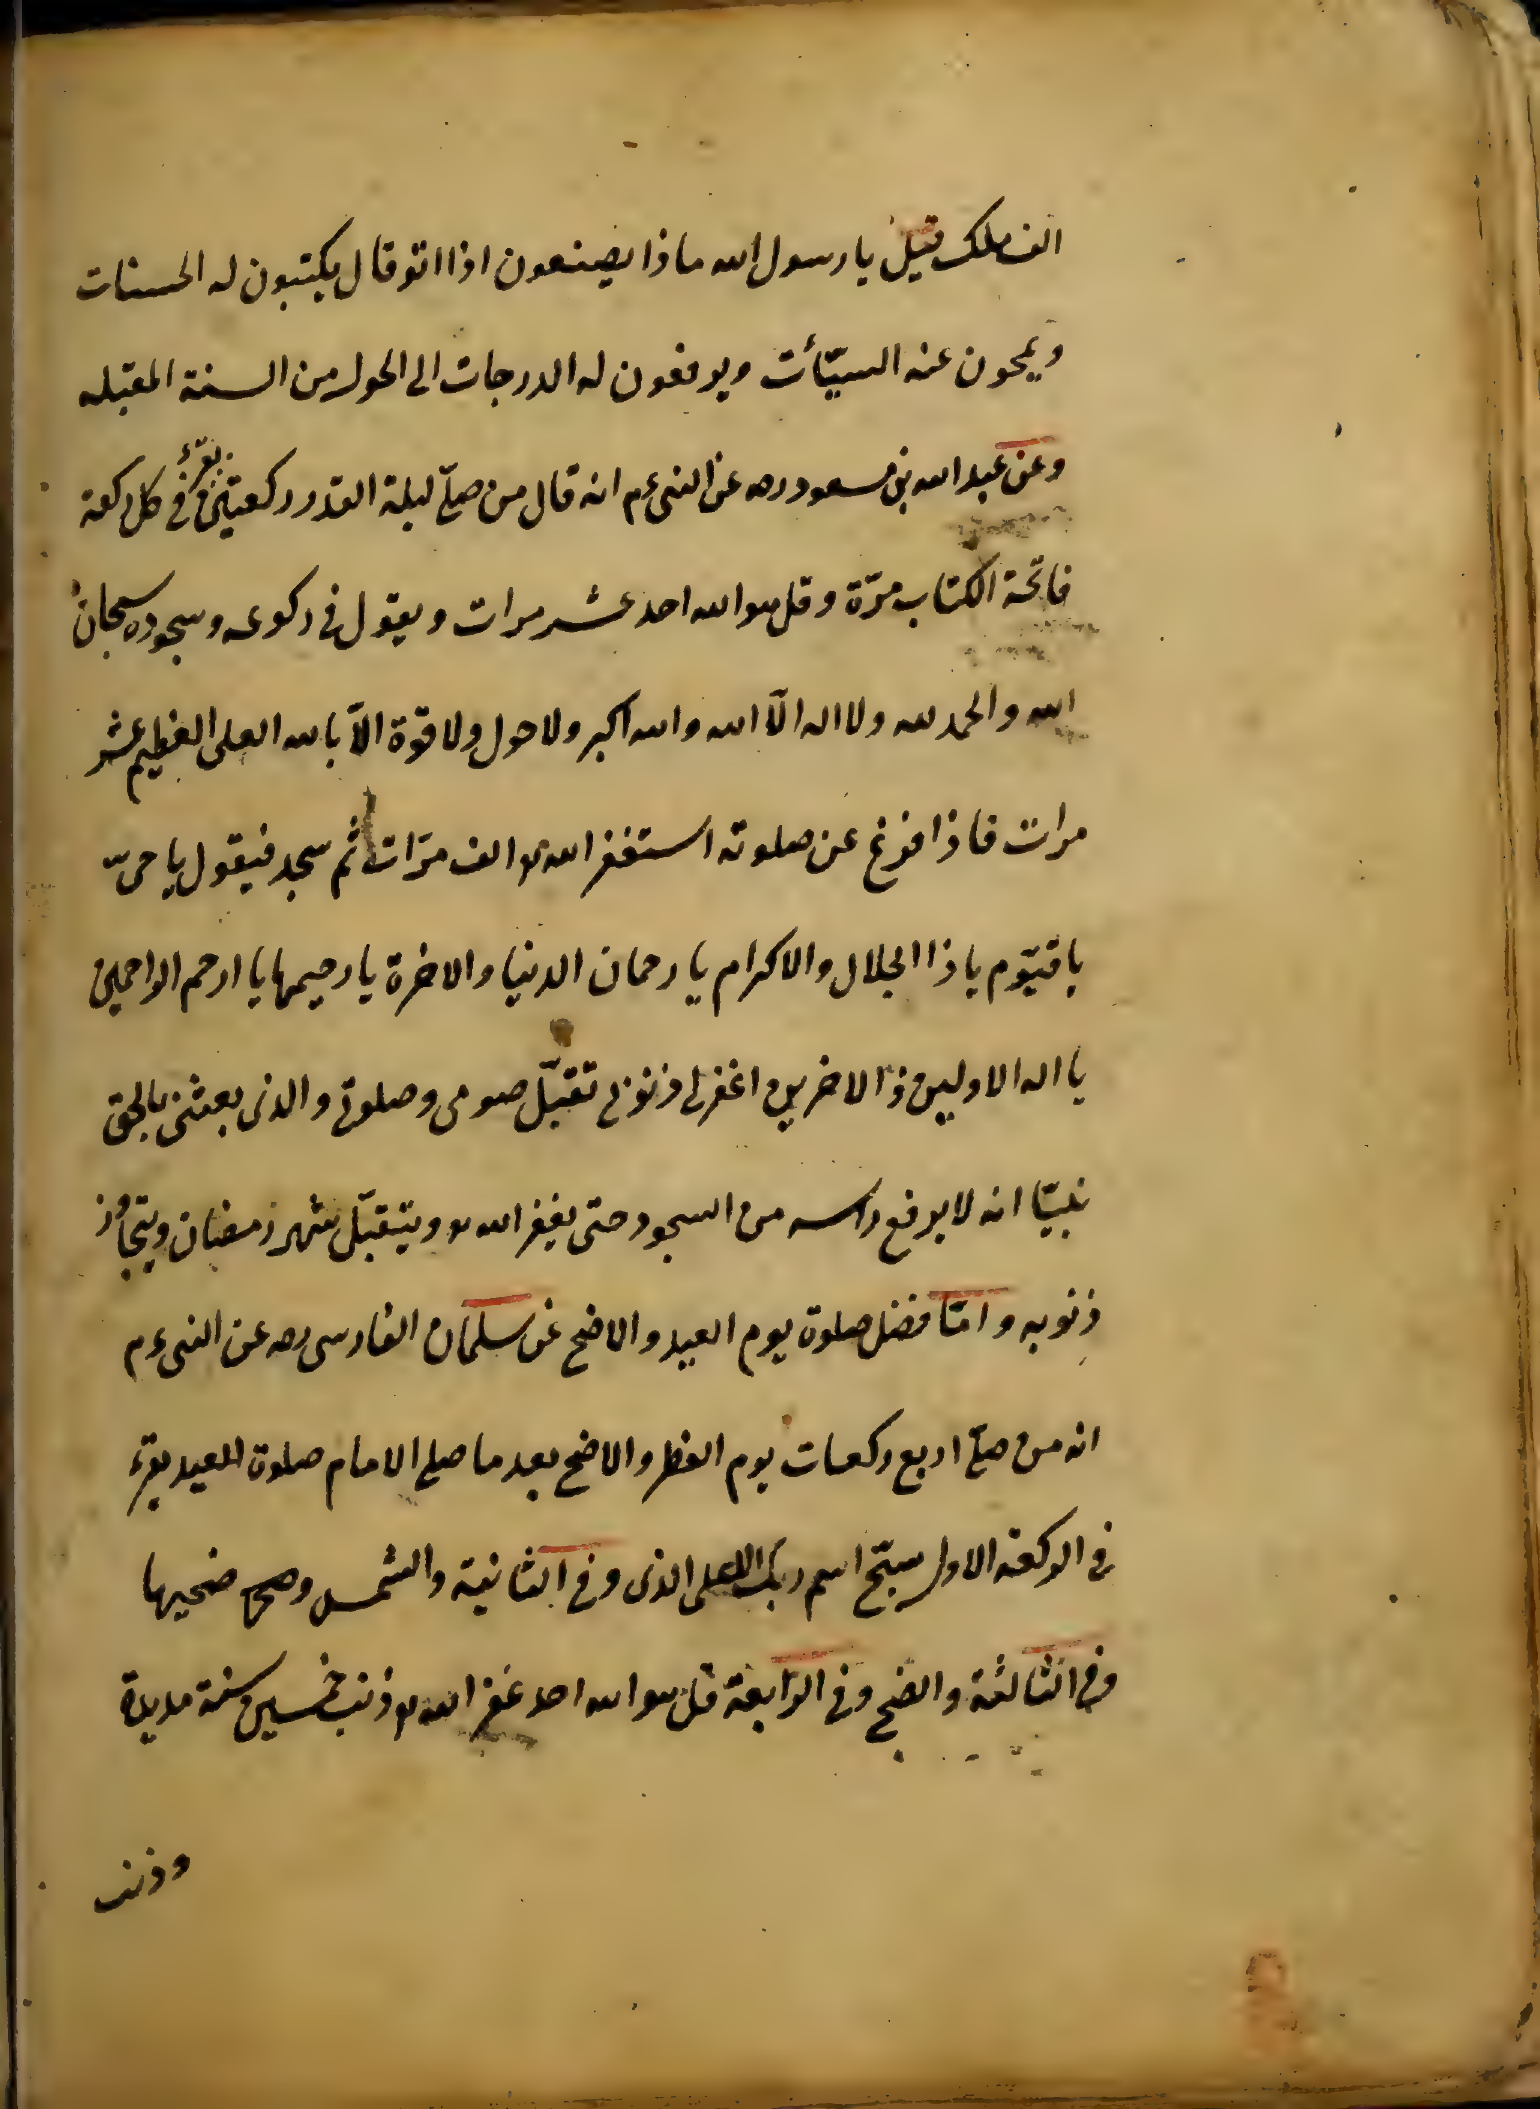 الف ملك قيل يا رسول الله ماذا يصنعون اذا اتو قال يكتبون له الحسنات
ويمحون عنه السيّأت ويرفعون له الدرجات الى الحول من السنة المقبله
وعن عبد الله بن مسعود رضه عن النبى عم انه قال من صلّى ليلة القدر ركعتين يقرء فى كل ركعة
فاتحة الكتاب مرّة وقل هو الله احد عشر مرات ويقول فى ركوعه وسجوده سبحان
الله والحمد لله ولا اله الّا الله والله اكبر ولا حول ولا قوة الّا بالله العلى العظيم عشر
مرات فاذا فرغ عن صلوته استغفر الله له الف مرّات ثم سجد فيقول يا حىّ
يا قيّوم يا ذا الجلال والاكرام يا رحمان الدنيا والاخرة يا رحيمها يا ارحم الراحمين
يا اله الاولين والاخرين اغفر لى ذنوبى تقبّل صومى وصلوتى والذى بعثنى بالحق
نبيّا انه لا يرفع راسه من السجود حتى يغفر الله له ويتقبّل شهر رمضان ويتجاوز
ذنوبه وامّا فضل صلوة يوم العيد والاضحى عن سلمان الفارسى رضه عن النبى عم
انه من صلّى اربع ركعات يوم الفطر والاضحى بعد ما صلى الامام صلوة العيد يقرء
فى الركعة الاولى سبّح اسم ربك الاعلى الذى وفى الثانية والشمس وضحيها
وفى الثالثة والضحى وفى الرّابعة قل هو الله احد غفر الله له ذنب خمسين سنة مديدة
وذنب